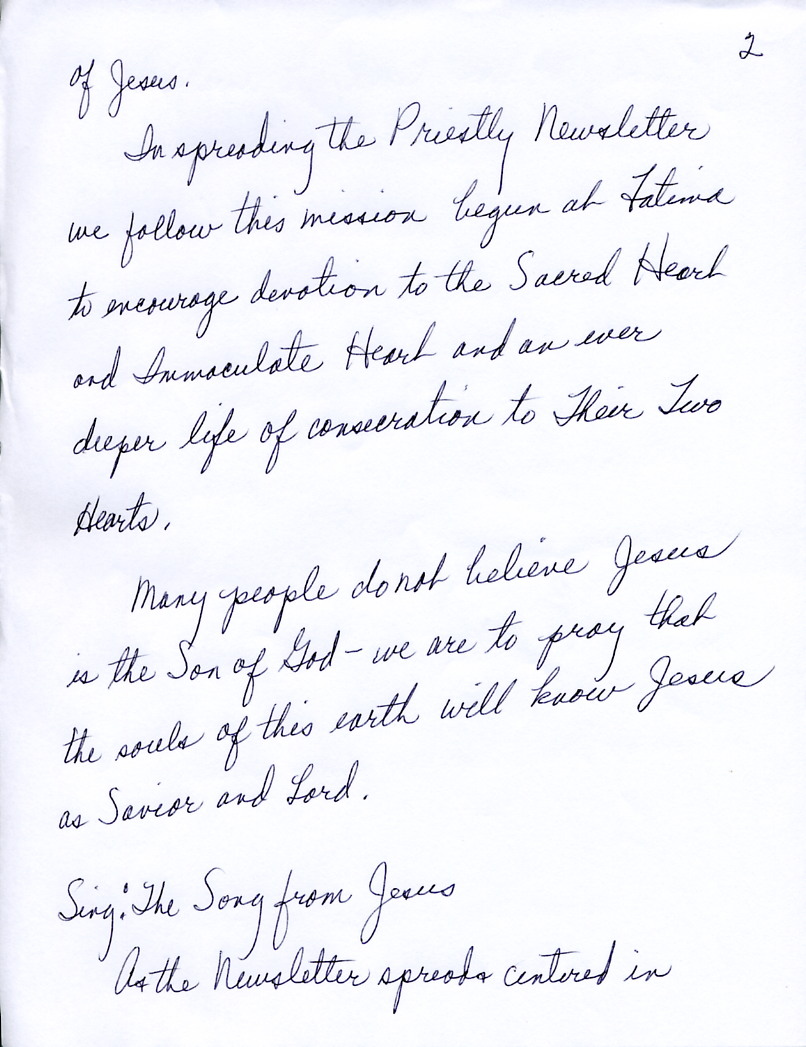 2
of Jesus.
In spreading the Priestly Newsletter
we follow this mission begun at Fatima
to encourage devotion to the Sacred Heart
and Immaculate Heart and an ever
deeper life of consecration to Their Two
Hearts.
Many people do not believe Jesus
is the Son of God - we are to pray that
the souls of this earth will know Jesus
as Savior and Lord.
Sing: The Song from Jesus
As the Newsletter spreads centered in